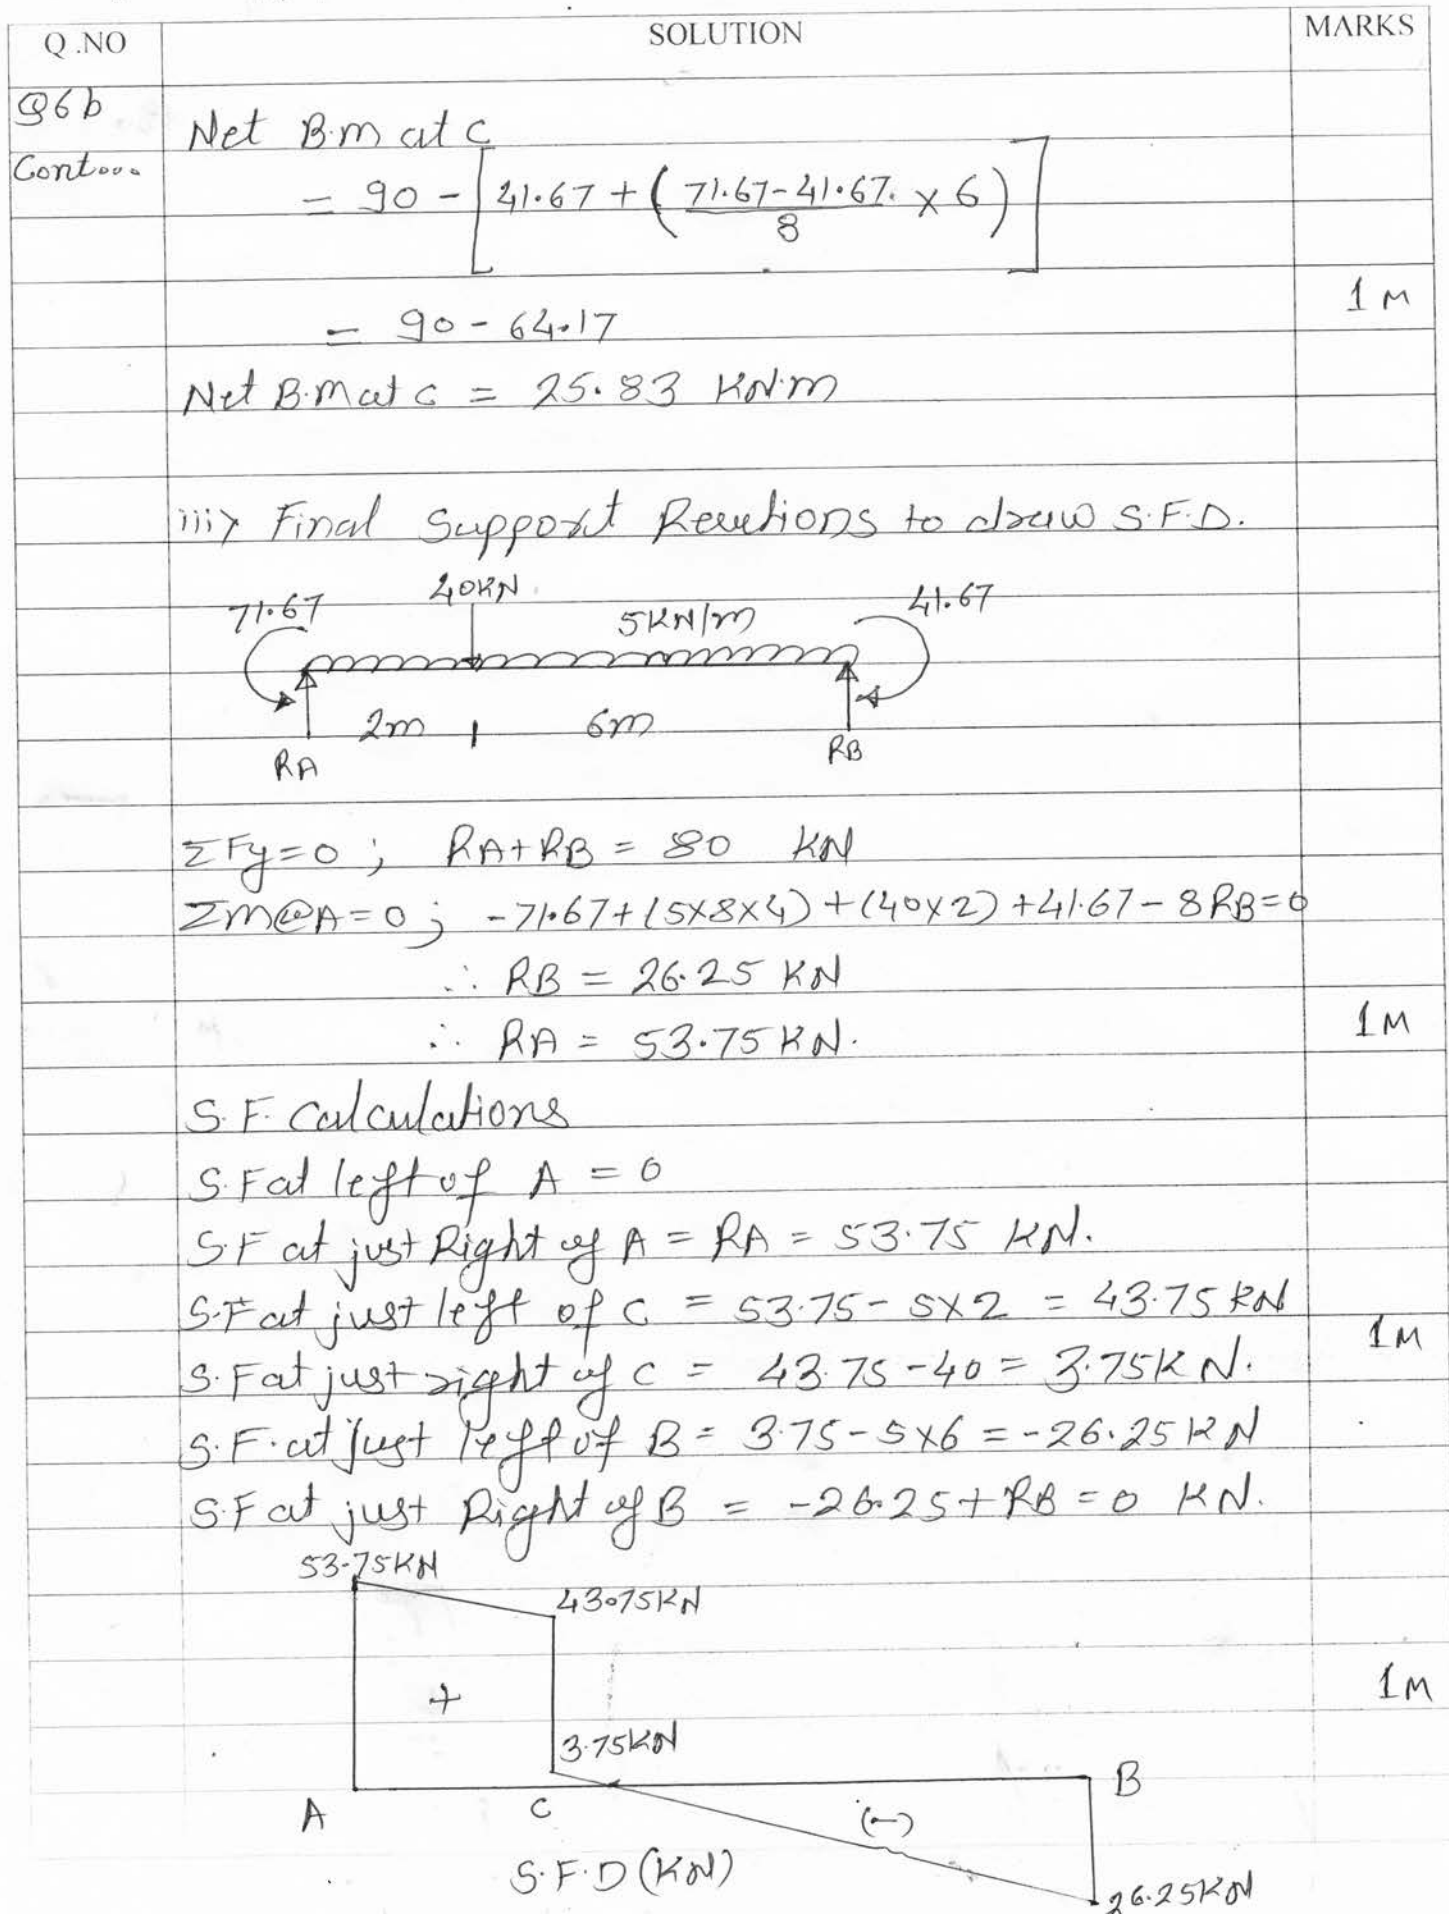 Q.NO SOLUTION MARKS
Q6b
Net B.m at C
Cont...
= 90 - [41.67 + (71.67-41.67/8 × 6)]
1 M
= 90 - 64.17
Net B.M at C = 25.83 KN.m
iii> Final Support Reactions to draw S.F.D.
71.67 40KN 5KN/m 41.67
2m 6m
RA RB
ΣFy=0; RA+RB = 80 KN
ΣM@A=0; -71.67+(5×8×4)+(40×2)+41.67-8RB=0
∴ RB = 26.25 KN
1M
∴ RA = 53.75 KN.
S.F. Calculations
S.F at left of A = 0
S.F at just Right of A = RA = 53.75 KN.
S.F at just left of C = 53.75 - 5×2 = 43.75 KN
1M
S.F at just right of C = 43.75 - 40 = 3.75 KN.
S.F. at just left of B = 3.75 - 5×6 = -26.25 KN
S.F at just Right of B = -26.25 + RB = 0 KN.
53.75KN
43.75KN
+
1M
3.75KN
B
A C (-)
S.F.D (KN)
26.25KN